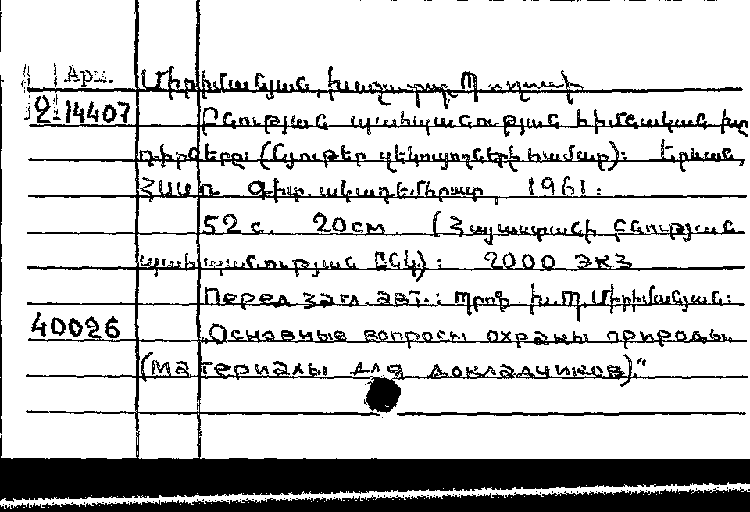 Арм. Միրիմանյան, Խաչատուր Պողոսի
Զ-14407 Բնության պահպանության հիմնական խն
դիրները: (Նյութեր զեկուցողների համար): Երևան,
ՀՍՍՌ Գիտ. ակադեմիրատ, 1961:
52 с. 20 см. (Հայաստանի բնության
պահպանության ընկ): 2000 экз
Перед загл. авт.: Պրոֆ. Խ.Պ. Միրիմանյան:
40026 „Основные вопросы охраны природы.
(материалы для докладчиков)."